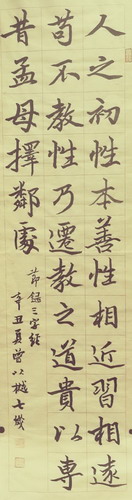 人之初性本善性相近習相遠
苟不教性乃遷教之道貴以專
昔孟母擇鄰處
節錄三字經
辛丑夏曾以城七歲